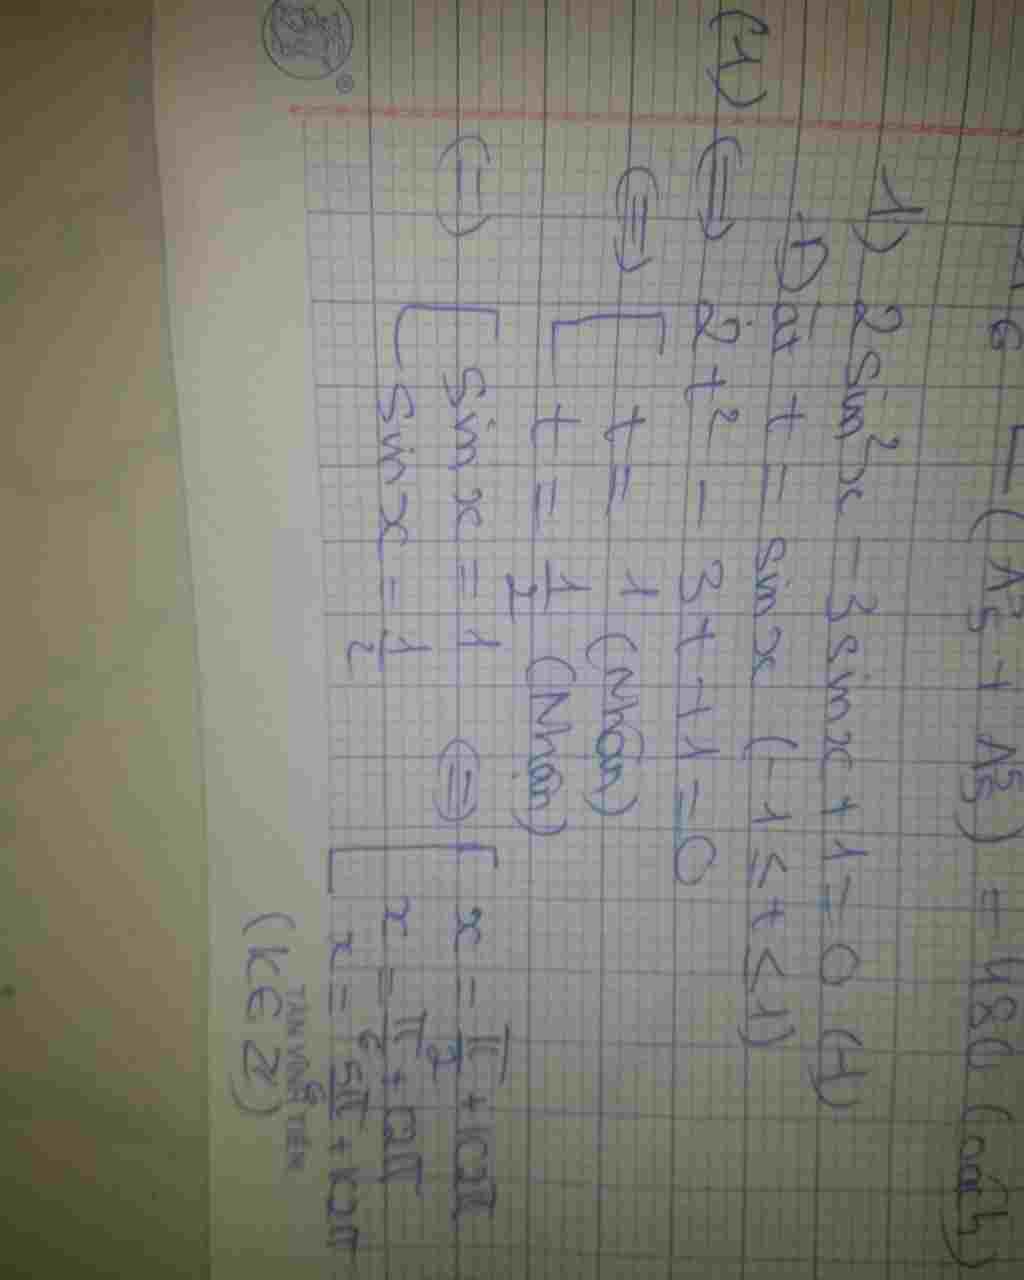 (A³₅ + A⁵₅) = 480 (cách)
1) 2sin²x - 3sinx + 1 = 0 (1)
Đặt t = sinx (-1 ≤ t ≤ 1)
(1) ⇔ 2t² - 3t + 1 = 0
⇔ [ t = 1 (Nhận)
t = 1/2 (Nhận)
⇔ [ sinx = 1 ⇔ [ x = π/2 + k2π
sinx = 1/2 x = π/6 + k2π
x = 5π/6 + k2π
(k ∈ Z)
TÂN VĨNH TIẾN